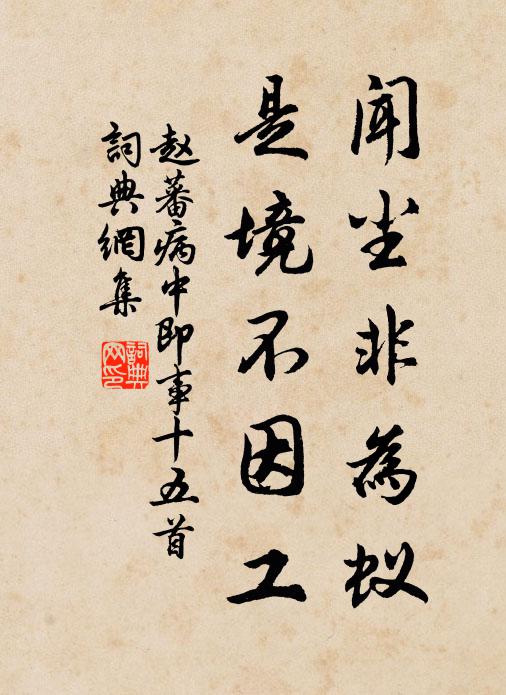 闻尘非為蚁
是境不因工
赵蕃病中即事十五首
詞典網集
詞典网印